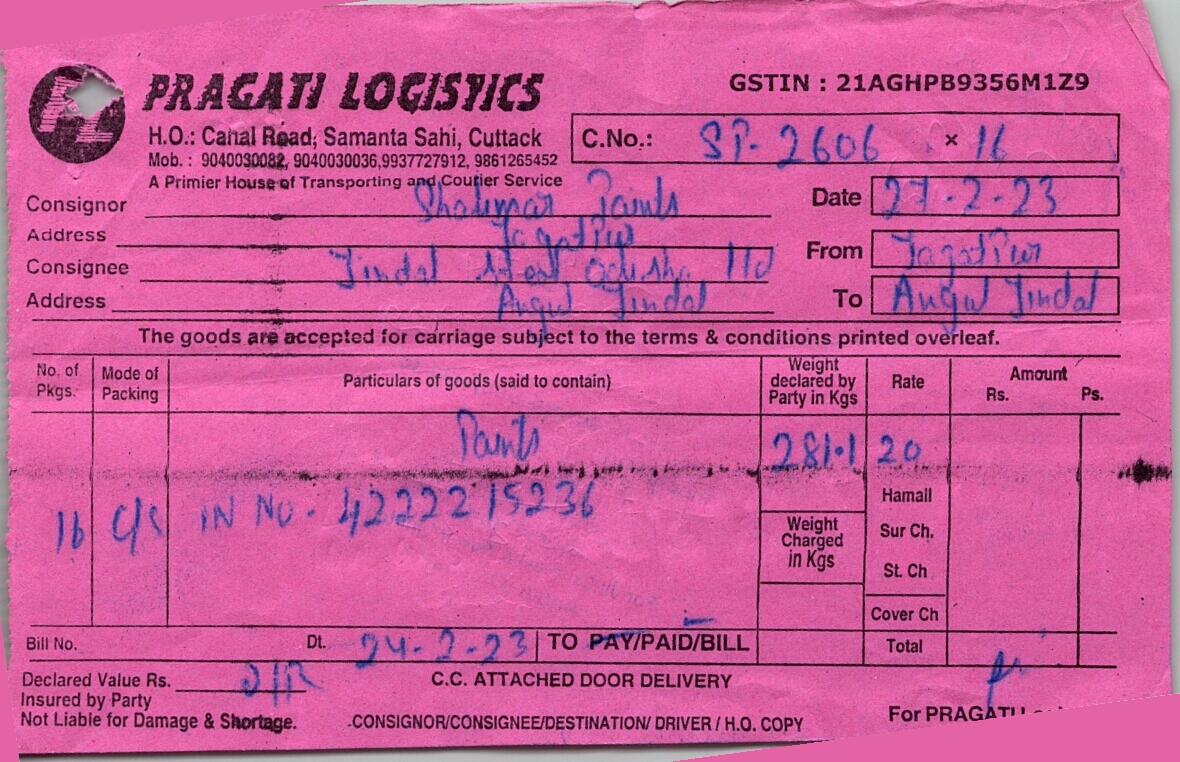 PRAGATI LOGISTICS
GSTIN : 21AGHPB9356M1Z9
H.O.: Canal Road, Samanta Sahi, Cuttack
Mob. : 9040030082, 9040030036,9937727912, 9861265452
A Primier House of Transporting and Courier Service
C.No.: SP- 2606 × 16
Consignor Shalimar Paints
Date 27-2-23
Address Jagatpur
From Jagatpur
Consignee Jindal Steel Odisha ltd
Address Angul Jindal
To Angul Jindal
The goods are accepted for carriage subject to the terms & conditions printed overleaf.
No. of Pkgs. Mode of Packing Particulars of goods (said to contain) Weight declared by Party in Kgs Rate Amount Rs. Ps.
Paints 281.1 20
Hamali
16 C/S IN NO. 42222 15236
Weight Charged in Kgs
Sur Ch.
St. Ch
Cover Ch
Bill No. Dt. 24-2-23 TO PAY/PAID/BILL Total
Declared Value Rs.
C.C. ATTACHED DOOR DELIVERY
Insured by Party
Not Liable for Damage & Shortage.
CONSIGNOR/CONSIGNEE/DESTINATION/ DRIVER / H.O. COPY
For PRAGATI